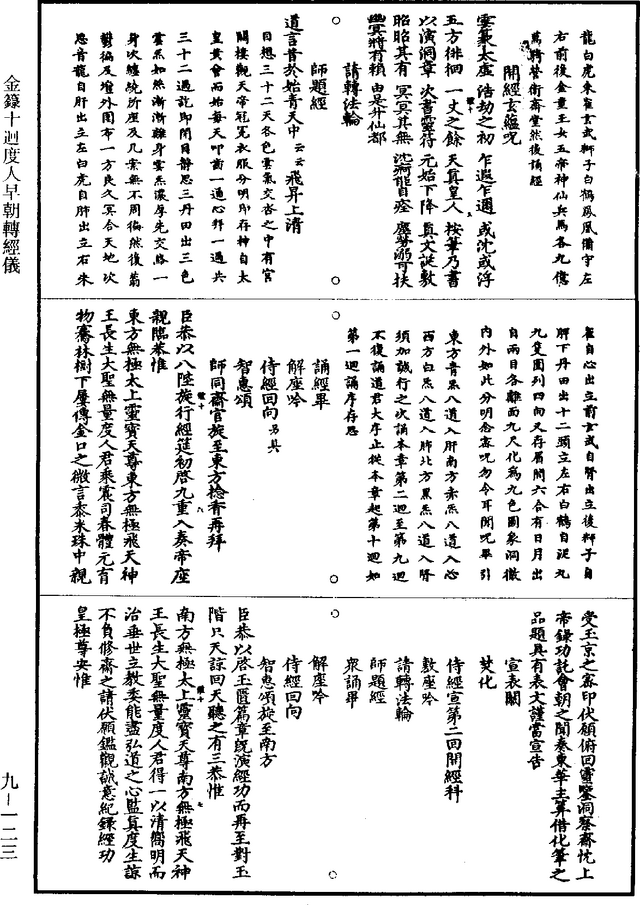 龍白虎朱雀玄武獅子白鶴鳳凰備守左
右前後金童玉女五帝神仙兵馬各九億
萬騎營衛齋堂然後誦經
開經玄蘊呪
雲篆太虛浩劫之初乍遐乍邇或沈或浮
五方徘徊一丈之餘天真皇人按筆乃書
以演洞章次書靈符元始下降真文誕敷
昭昭其有冥冥其無沈痾能自痊塵勞溺可扶
幽冥將有賴由是升仙都
請轉法輪
師題經
道言昔於始青天中云云飛昇上清
目想三十二天各色雲氣交沓之中有官
闕樓觀天帝冠冕衣服分明即存神自太
皇黃曾而始每天叩齒一通心拜一過共
三十二過訖即閉目靜思三丹田出三色
雲炁如然漸漸離身雲炁濃厚先交絡一
身次纏繞所座及几案無不周徧然後蓊
鬱徧及壇外圍布一方良久冥合天地次
思青龍自肝出立左白虎自肺出立右朱
雀自心出立前玄武自腎出立後獅子自
脾下丹田出十二頭立左右白鶴自泥丸
九隻圍列四向又存眉間六合有日月出
自兩目各離面九尺化為九色圓象洞徹
內外如此分明念密呪勿令耳聞呪畢引
東方青炁八道入肝南方赤炁八道入心
西方白炁八道入肺北方黑炁八道入腎
須加誠行之次誦本章第二迴至第九迴
不復誦道君大序止從本章起第十迴如
第一迴誦序存思
誦經畢
解座吟
侍經回向乃具
智惠頌
師同齋官旋至東方捻香再拜
臣恭以八陛旋行經筵初啓九重入奏帝座
親臨恭惟
東方無極太上靈寶天尊東方無極飛天神
王長生大聖無量度人君乘震司春體元育
物騫林樹下屢傳金口之微言黍米珠中親
受玉京之密印伏願俯回靈鑒洞察齋忱上
帝錄功託會朝之聞奏東華主筭借化筆之
品題具有表文謹當宣告
宣表關
焚化
侍經宣第二回開經科
敷座吟
請轉法輪
師題經
眾誦畢
解座吟
侍經回向
智惠頌旋至南方
臣恭以啓玉匱篇章旣演經功而再至對玉
階只天諒回天聽之有三恭惟
南方無極太上靈寶天尊南方無極飛天神
王長生大聖無量度人君得一以清嚮明而
治垂世立教委能盡弘道之心監真度生諒
不負修齋之請伏願鑑觀誠意紀錄經功
皇極尊安惟
金籙十迴度人早朝轉經儀
九—一二三